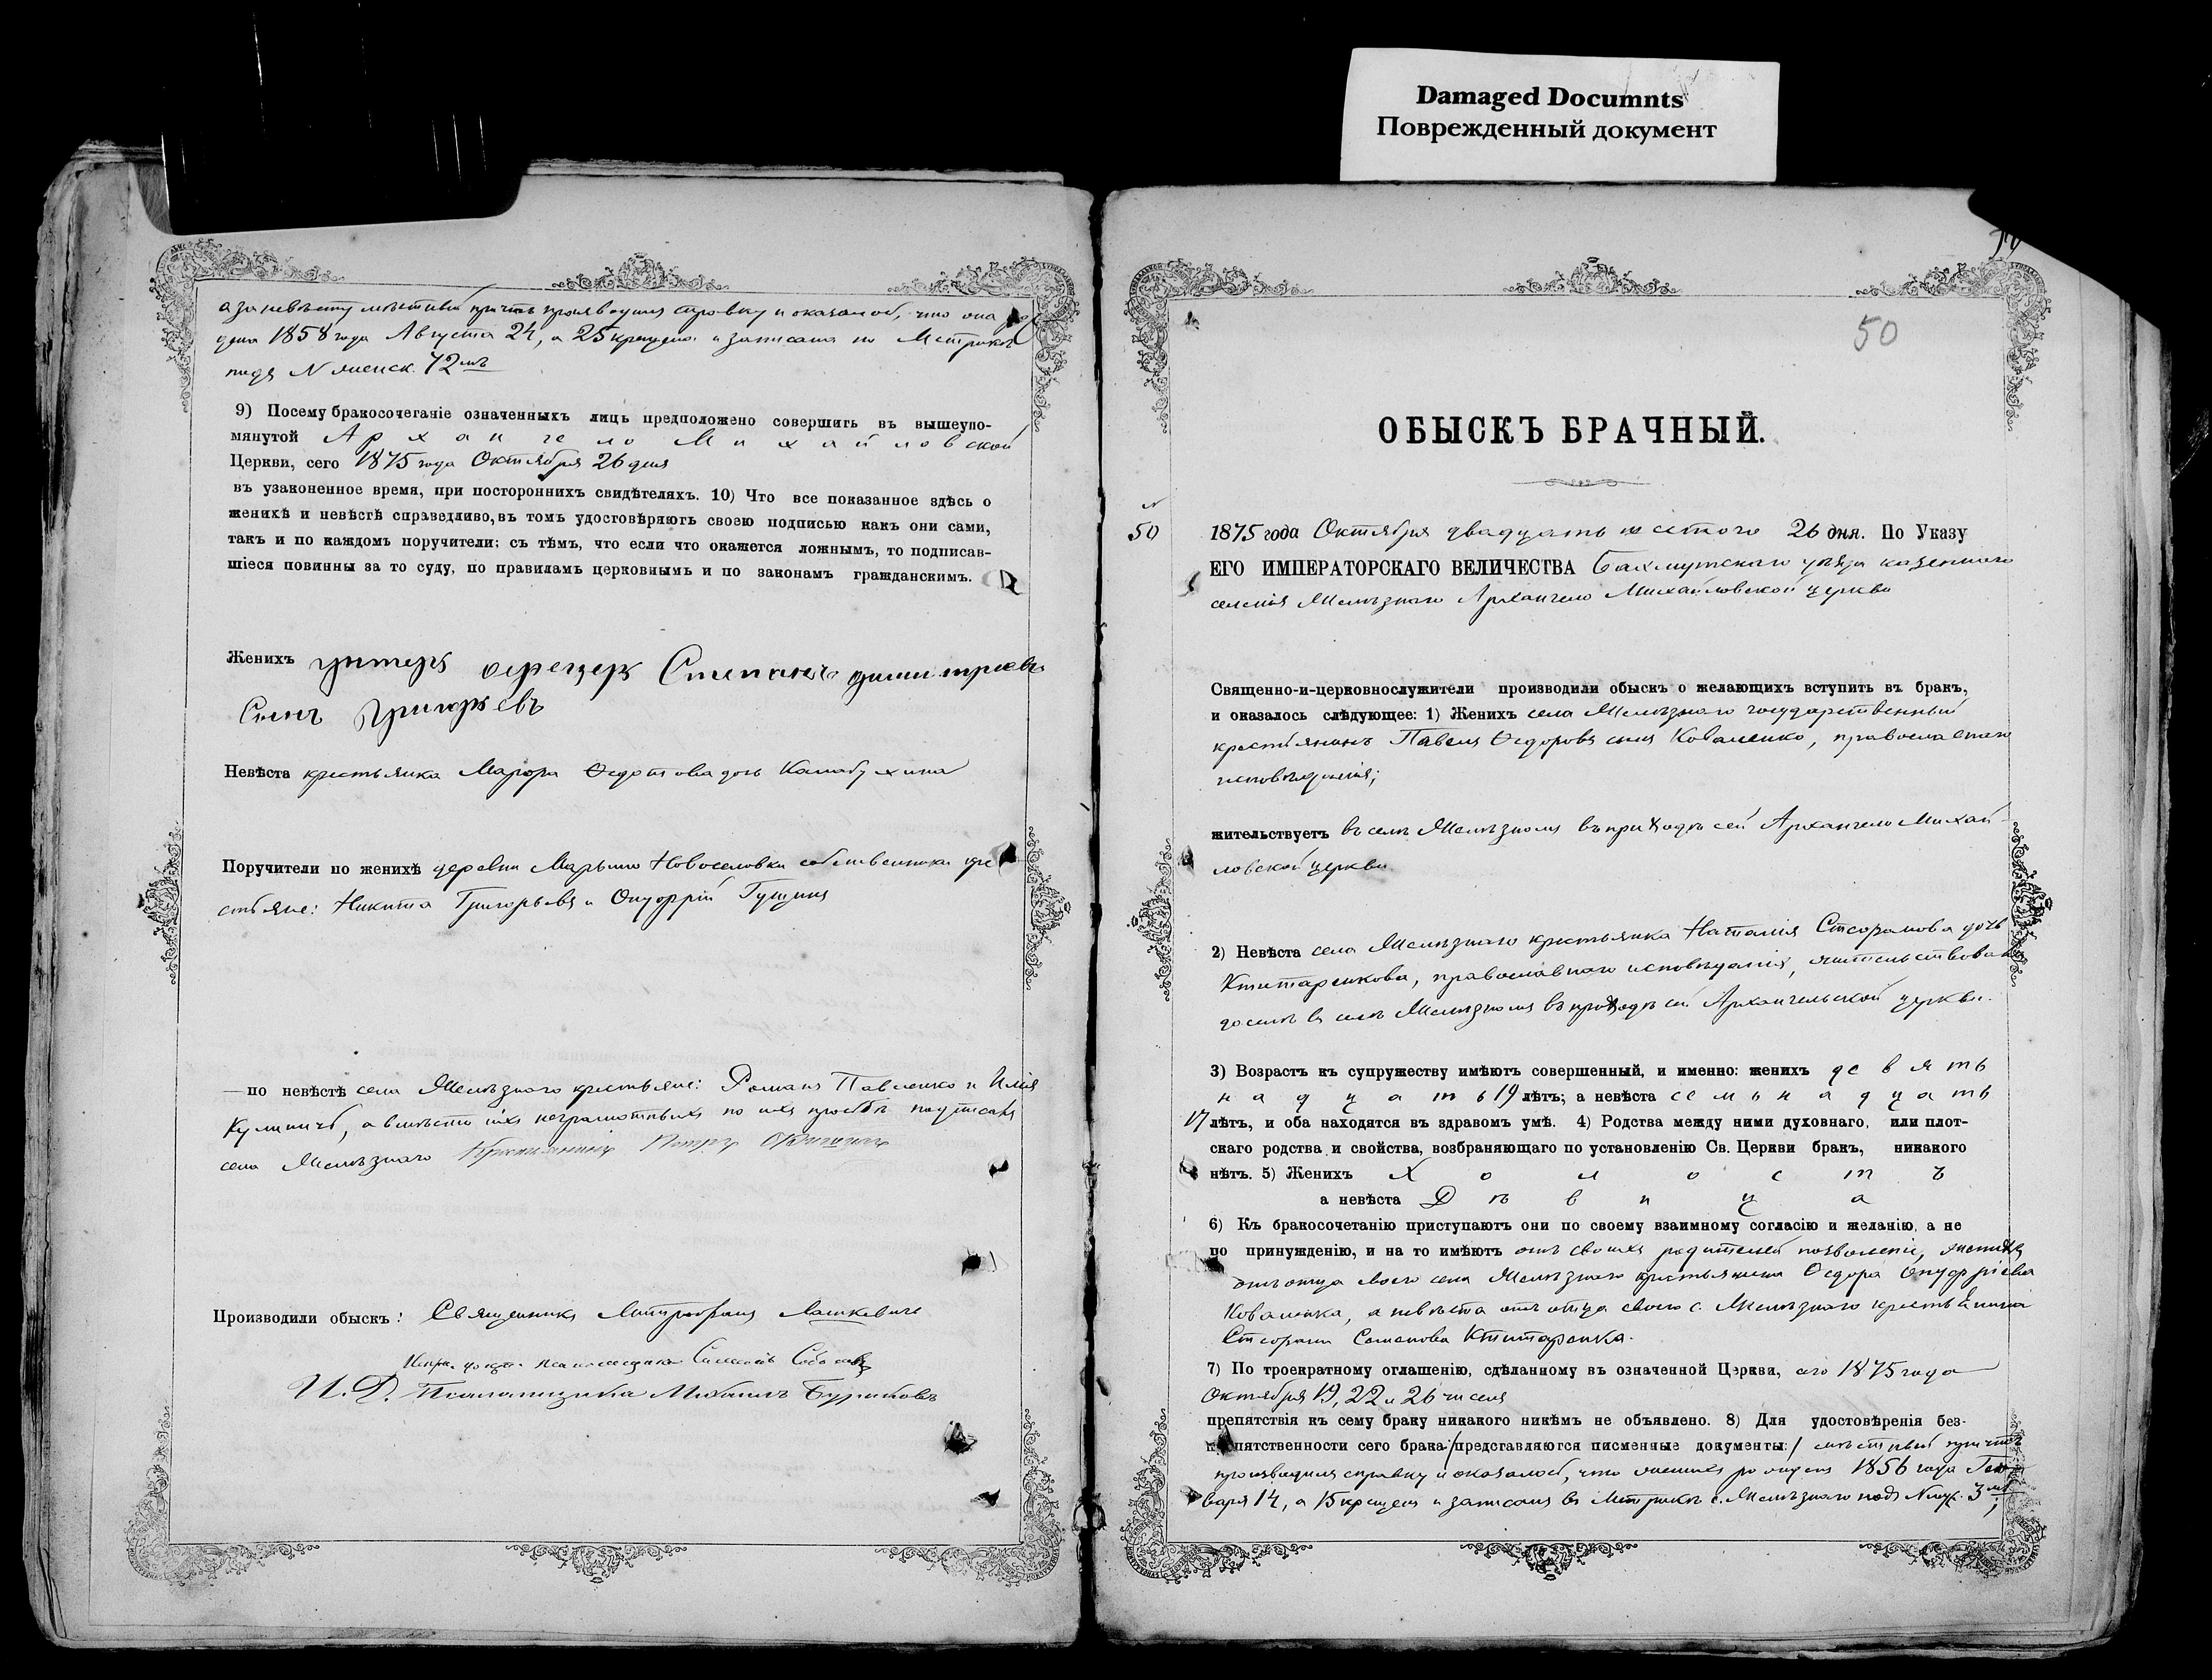 Damaged Documnts
Поврежденный документ
а за невѣсту мѣстный причтъ производилъ справку и оказалось, что она рож
дена 1858 года Августа 24, а 25 крещена и записана по Метрикѣ
подъ N женск. 72мъ
9) Посему бракосочетаніе означенныхъ лицъ предположено совершить въ вышеупо-
мянутой Архангело Михайловской
Церкви, сего 1875 года Октября 26 дня
въ узаконенное время, при постороннихъ свидѣтеляхъ. 10) Что все показанное здѣсь о
женихѣ и невѣстѣ справедливо, въ томъ удостовѣряютъ своею подписью какъ они сами,
такъ и по каждомъ поручители; съ тѣмъ, что если что окажется ложнымъ, то подписав-
шіеся повинны за то суду, по правиламъ церковнымъ и по законамъ гражданскимъ.
Женихъ унтеръ офецеръ Степанъ
Сынъ Григорьевъ
Невѣста крестьянка Марфа Ѳедотова дочь
Поручители по женихѣ деревни Марьино Новоселовки собственники кре
стьяне: Никита Григорьевъ и Онуфрій Гущинъ
— по невѣстѣ села Желѣзнаго крестьяне: Романъ Павленко и Илія
Куличъ, а вмѣсто ихъ неграмотныхъ по ихъ просьбѣ подписалъ
села Желѣзнаго Крестьянинъ Петръ
Производили обыскъ: Священникъ Митрофанъ Лашкевичъ
Псаломщика
И. Д. Псаломщика Михаилъ
50
ОБЫСКЪ БРАЧНЫЙ.
N
50
1875 года Октября двадцать шестого 26 дня. По Указу
ЕГО ИМПЕРАТОРСКАГО ВЕЛИЧЕСТВА Бахмутскаго уѣзда казеннаго
селенія Желѣзнаго Архангело Михайловской церкви
Священно-и-церковнослужители производили обыскъ о желающихъ вступить въ бракъ,
и оказалось слѣдующее: 1) Женихъ села Желѣзнаго государственный
крестьянинъ Павелъ Ѳедоровъ сынъ Коваленко, православнаго
исповѣданія;
жительствуетъ въ селѣ Желѣзномъ въ приходѣ сей Архангело Михай-
ловской церкви.
2) Невѣста села Желѣзнаго крестьянка Наталія Стефанова дочь
Ктитаренкова, православнаго исповѣданія, жительствовала
доселѣ въ селѣ Желѣзномъ въ приходѣ сей Архангельской церкви.
3) Возрастъ къ супружеству имѣютъ совершенный, и именно: женихъ девять
надцать 19 лѣтъ; а невѣста семьнадцать
17 лѣтъ, и оба находятся въ здравомъ умѣ. 4) Родства между ними духовнаго, или плот-
скаго родства и свойства, возбраняющаго по установленію Св. Церкви бракъ, никакого
нѣтъ. 5) Женихъ Холостъ
а невѣста Дѣвица
6) Къ бракосочетанію приступаютъ они по своему взаимному согласію и желанію, а не
по принужденію, и на то имѣютъ отъ своихъ родителей позволеніе, женихъ
отъ отца своего села Желѣзнаго крестьянина Ѳедора Онуфріева
Коваленка, а невѣста отъ отца своего с. Желѣзнаго крестьянина
Стефана Семенова Ктитаренка.
7) По троекратному оглашенію, сдѣланному въ означенной Церкви, сего 1875 года
Октября 19, 22 и 26 чиселъ
препятствія къ сему браку никакого никѣмъ не объявлено. 8) Для удостовѣренія без-
препятственности сего брака / представляются писменные документы: / мѣстный причтъ
производилъ справку и оказалось, что женихъ рожденъ 1856 года Ген
варя 14, а 15 крещенъ и записанъ въ Метрикѣ с. Желѣзнаго подъ N муж. 3мъ;